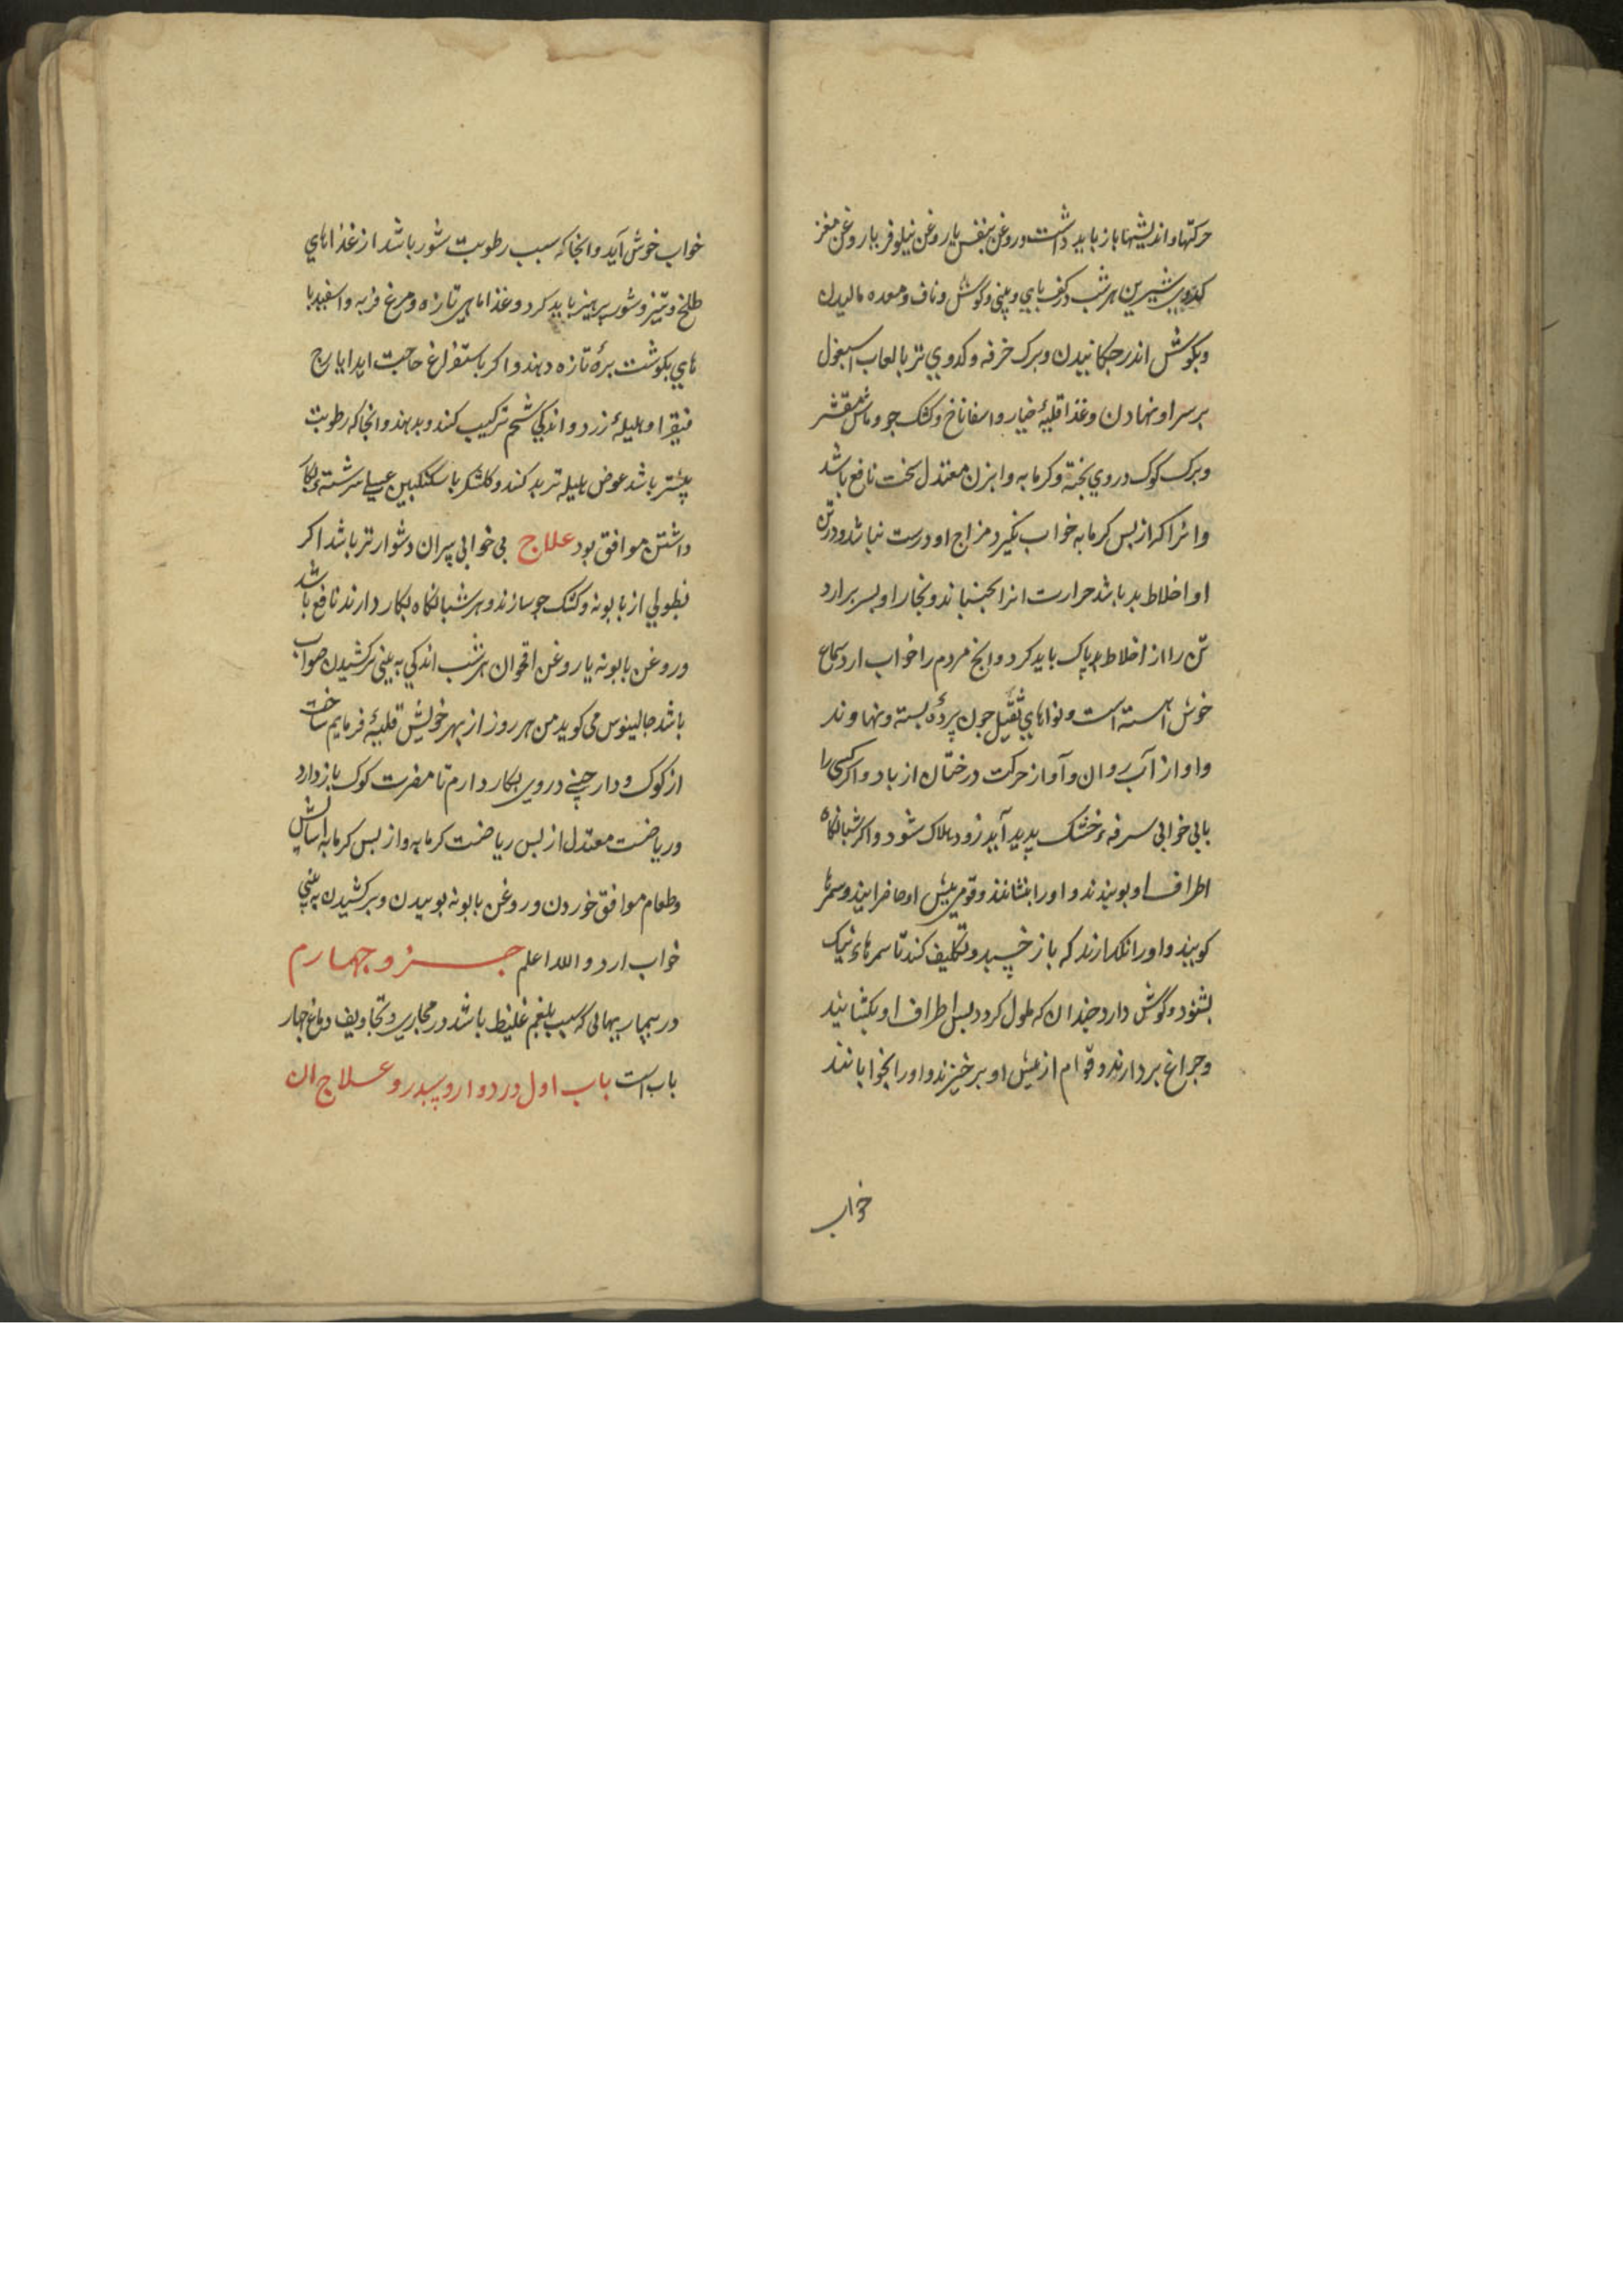 حرکتها و اندیشها باز باید داشت و روغن بنفش یا روغن نیلوفر یا روغن مغز
کدوی شیرین هر شب در کف پای و بینی و گوش و ناف و معده مالیدن
و بکوش اندر جکانیدن و برک خرفه و کدوی تر با لعاب اسبغول
بر سر او نهادن و غذا قلیهٔ خیار و اسفاناخ و کشک جو و ماش مقشر
و برک کوک در وی بخته و کرمابه و ابزن معتدل سخت نافع باشد
و انرا که از بس کرمابه خواب نکیرد مزاج او درست نباشد و در تن
او اخلاط بد باشد حرارت انرا بجنباند و بخار او بسر برارد
تن را از اخلاط بد پاک باید کرد و انج مردم را خواب ارد سماع
خوش اهسته است و نواهای ثقیل جون پردهٔ بسته و نهاوند
و اواز آب روان و آواز حرکت درختان از باد و اکر کسی را
با بی خوابی سرفهٔ خشک پدید آید زود هلاک شود و اکر شبانکاه
اطراف او ببندند و او را بنشانند و قومی پیش او حاضر ایند و سمرها
کویند و او را نکذارند که باز خسبد و تکلیف کند تا سمرهاء نیک
بشنود و گوش دارد جندان که ملول کردد بس اطراف او بکشایند
و جراغ بردارند و قوم از پیش او برخیزند و او را بخوابانند
خواب
خواب خوش آید و انجا که سبب رطوبت شور باشد از غذاهای
طلخ و تیز و شور پرهیز باید کرد و غذا ماهی تازه و مرغ فربه و اسفیدبا
های بکوشت برهٔ تازه دهند و اکر باستفراغ حاجت اید ایارج
فیقرا و هلیلهٔ زرد و اندکی شحم ترکیب کنند و بدهند و انجا که رطوبت
بیشتر باشد عوض هلیله تربد کنند و کلشکر با سکنکبین عسلی سرشته بکار
داشتن موافق بود علاج بی خوابی پیران دشوارتر باشد اکر
نطولی از بابونه و کشک جو سازند و هر شبانکاه بکار دارند نافع باشد
و روغن بابونه یا روغن اقحوان هر شب اندکی به بینی برکشیدن صواب
باشد جالینوس می کوید من هر روز از بهر خویش قلیهٔ فرمایم ساخت
از کوک و دارچینی در وی بکار دارم تا مضرت کوک باز دارد
و ریاضت معتدل از بس ریاضت کرمابه و از بس کرمابه اسایش
و طعام موافق خوردن و روغن بابونه بوییدن و برکشیدن به بینی
خواب ارد و الله اعلم جزو جهارم
در بیماریهائی که سبب بلغم غلیظ باشد در مجاری و تجاویف دماغ جهار
باب است باب اول در دوار و سدر و علاج ان